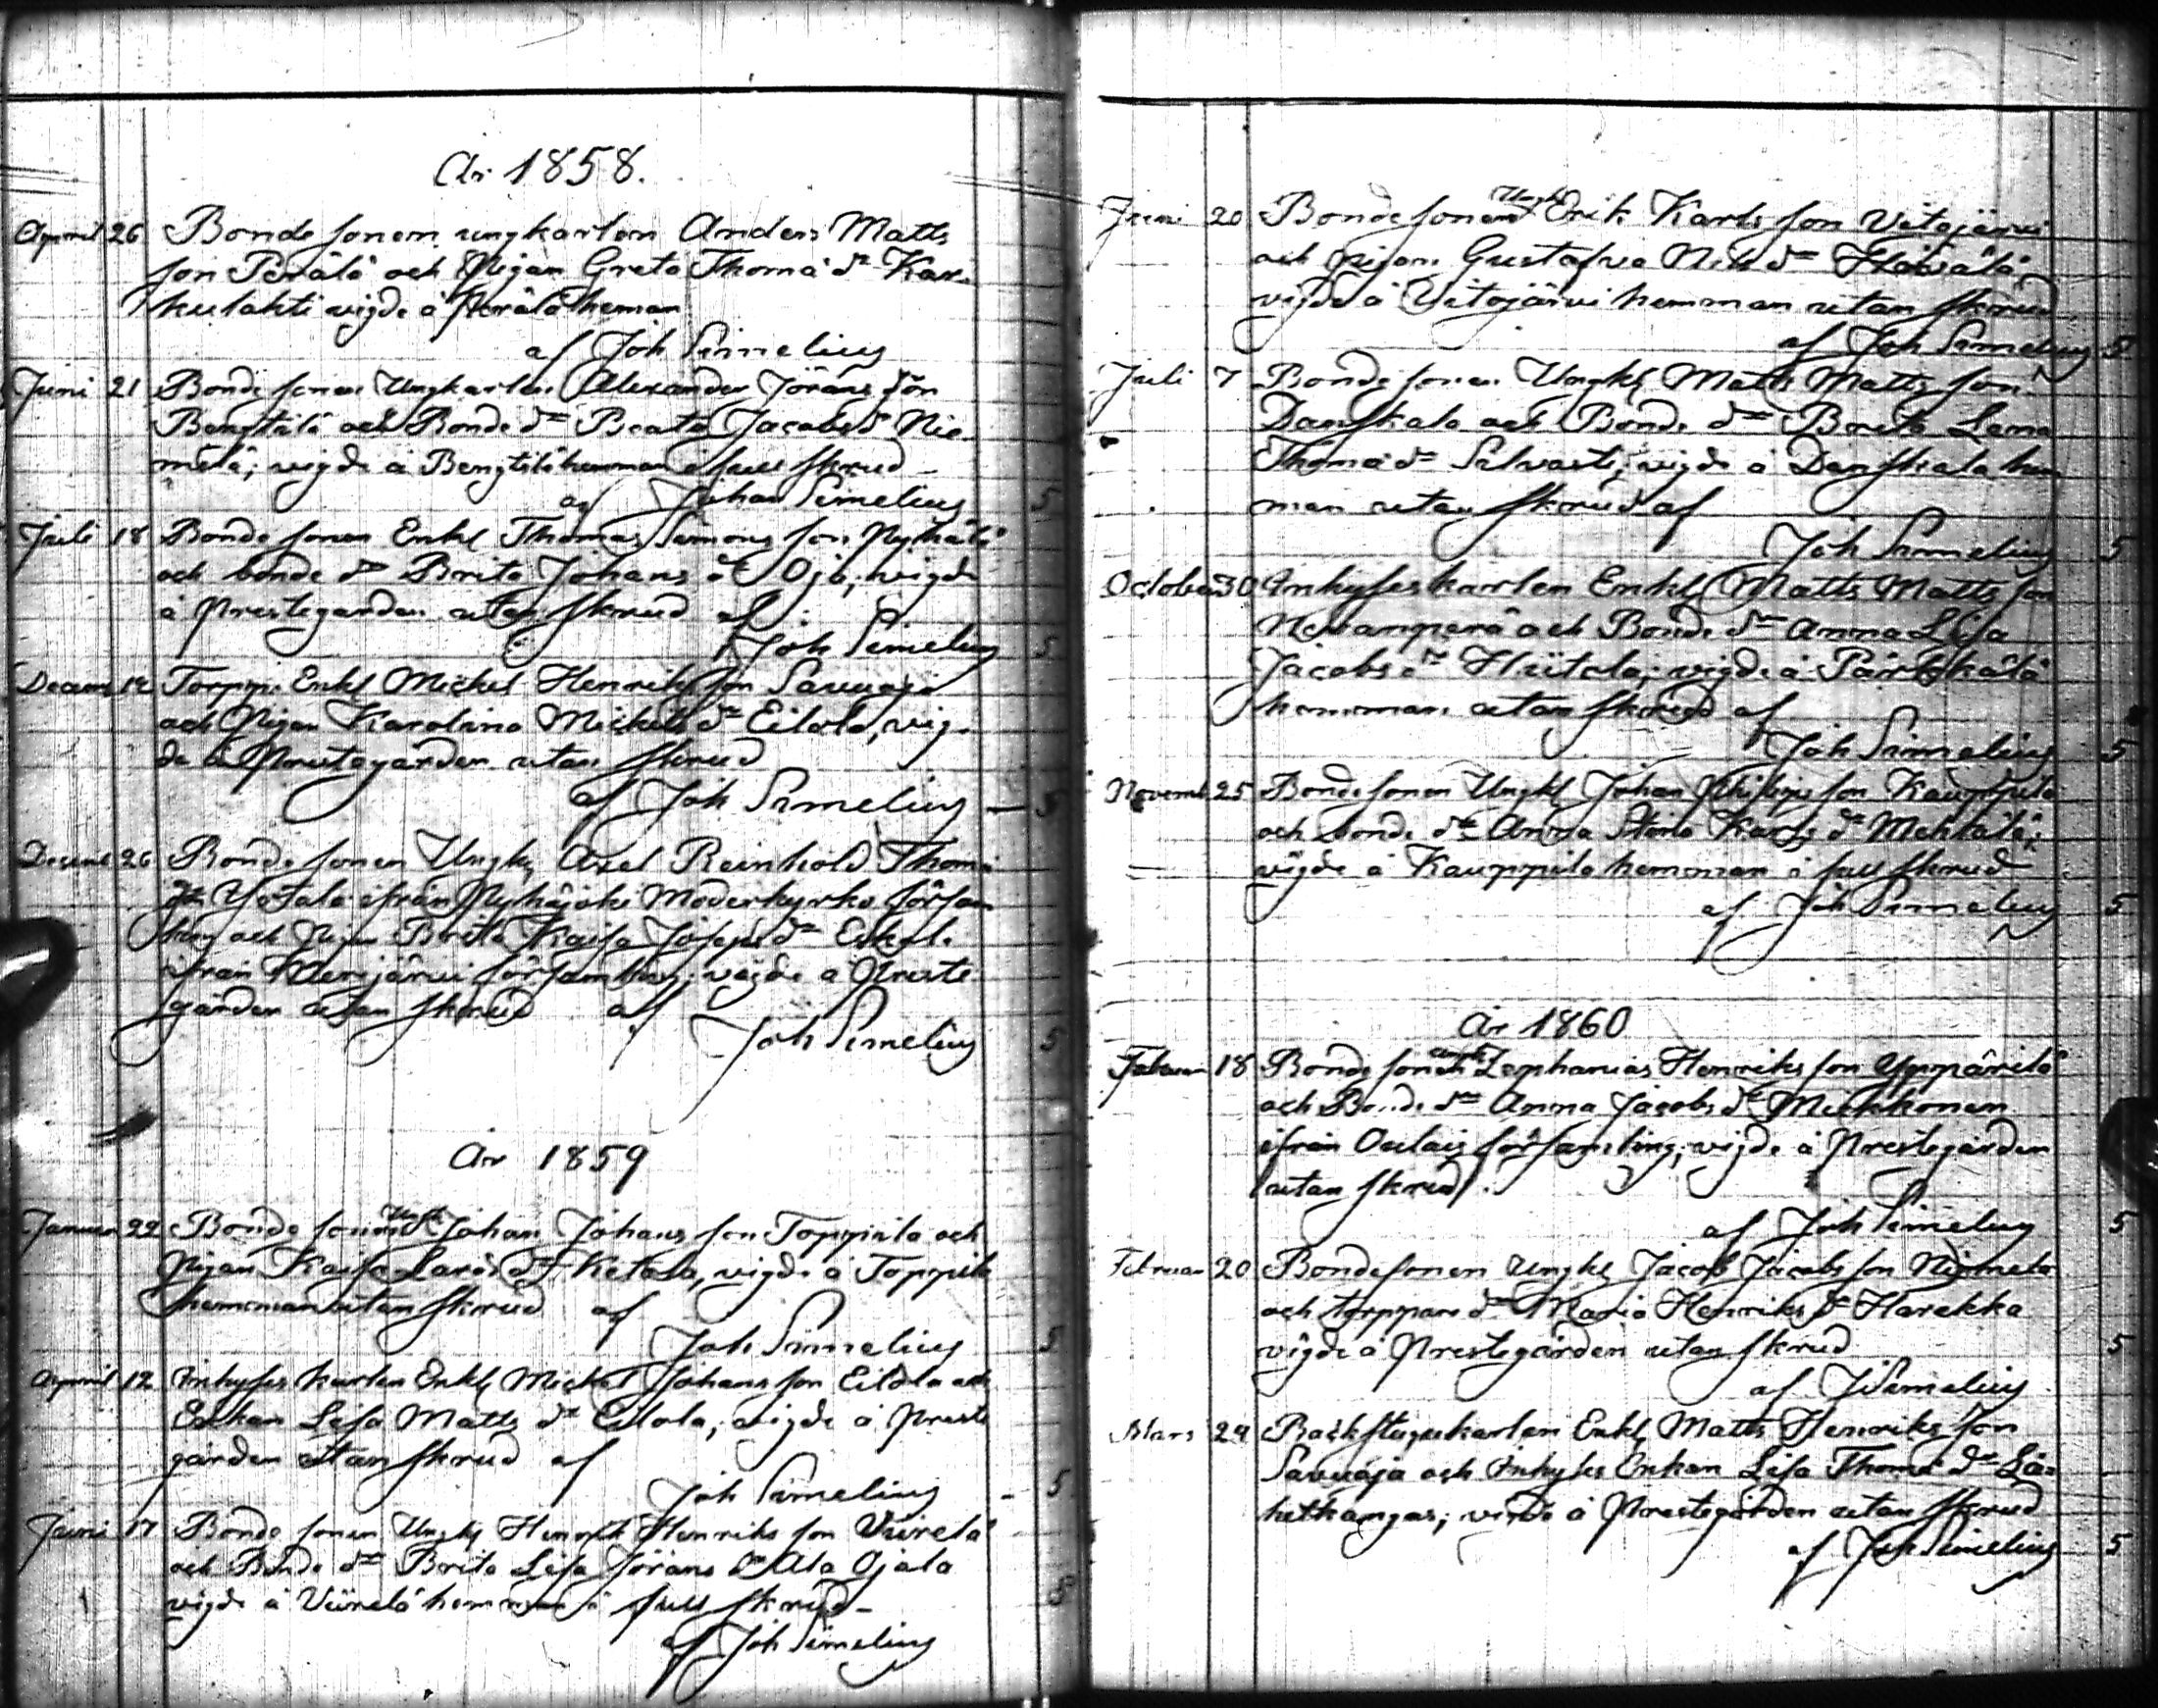 År 1858.
April 26 Bonde sonen ungkarlen Anders Matts
son Perälä och Pigan Greta Thomä dr Kar-
kulahti vigde å Perälä heman
af Joh Simelius
Juni 21 Bonde sonen Ungkarlen Alexander Jörans son
Bengtilä och Bonde dn Beata Jacobs dr Nie
melä; vigde å Bengtilä hemman i full skrud
af Johan Simelius 5
Juli 18 Bonde sonen Enkl Thomas Simons son
och bonde dn Brita Johans dr Oja; vigde
å Prestegården utan skrud af
Joh Simelius 5
Decem Torpp. Enkl Mickel Henriks son Savuoja
och Pigan Karolina Mickels dr Eilola, vig-
de å Prestegården utan skrud
af Joh Simelius — 5
Decemb 26 Bonde sonen Ungk Axel Reinhold Thome
ifrån Pyhäjoki Moderkyrko försam
ling och Pigan Brita Kaisa Joseps dr
ifrån Merijärvi församling; vigde å Preste
gården utan skrud af
Joh Simelius 5
År 1859
Januar 22 Bonde sonen Ungk Johan Johans son Toppila och
Pigan Kaisa Lars dr Ketola, vigde å Toppila
hemman utan skrud af
Joh Simelius 5
April 12 Inhyses karlen Enkl Mickel Johans son Eilola och
Enkan Lisa Matts dr Eilola; vigde å Preste
gården utan skrud af
Joh Simelius - 5
Juni 17 Bonde sonen Ungk Henrik Henriks son Viirelä
och Bonde dn Brita Lisa Jörans dr Ala Ojala
vigde å Viirelä hemman i full skrud - 5
af Joh Simelius
Juni 20 Bonde sonen Ungk Erik Karls son Vitojärvi
och pigan Gustafva Nils dr
vigde å Vitojärvi hemman utan skrud
af Joh Simelius 5
Juli 7 Bonde sonen Ungk Matts Matts son
Danskala och Bonde dn Brita Lena
Thomä dr Silvasti; vigde å Danskala hem
man utan skrud af
Joh Simelius 5
October 30 Inhyses karlen Enkl Matts Matts son
Nevanperä och Bonde dn Anna Lisa
Jacobs dr Hiitola; vigde å Pärkkälä
hemman utan skrud af
Joh Simelius 5
Novemb 25 Bonde sonen Ungk Johan Philips son Kauppila
och bonde dn Anna Stina Karls dr Mehtälä;
vigde å Kauppila hemman i full skrud
af Joh Simelius 5
År 1860
Februar 18 Bonde sonen Ungk Zephanias Henriks son Yppärilä
och Bonde dn Anna Jacobs dr Mickkonen
ifrån Oulais församling; vigde å Prestegården
utan skrud.
af Joh Simelius 5
Februar 20 Bondesonen Ungk Jacob Jacobs son Niemelä
och torppare dn Maria Henriks dr Harakka
vigde å Prestegården utan skrud 5
af J Simelius
Mars 29 Backstugukarlen Enkl Matts Henriks son
Savuoja och Inhyses Enkan Lisa Thomä dr Lä-
hetkangas; vigde å Prestegården utan skrud
af Joh Simelius 5